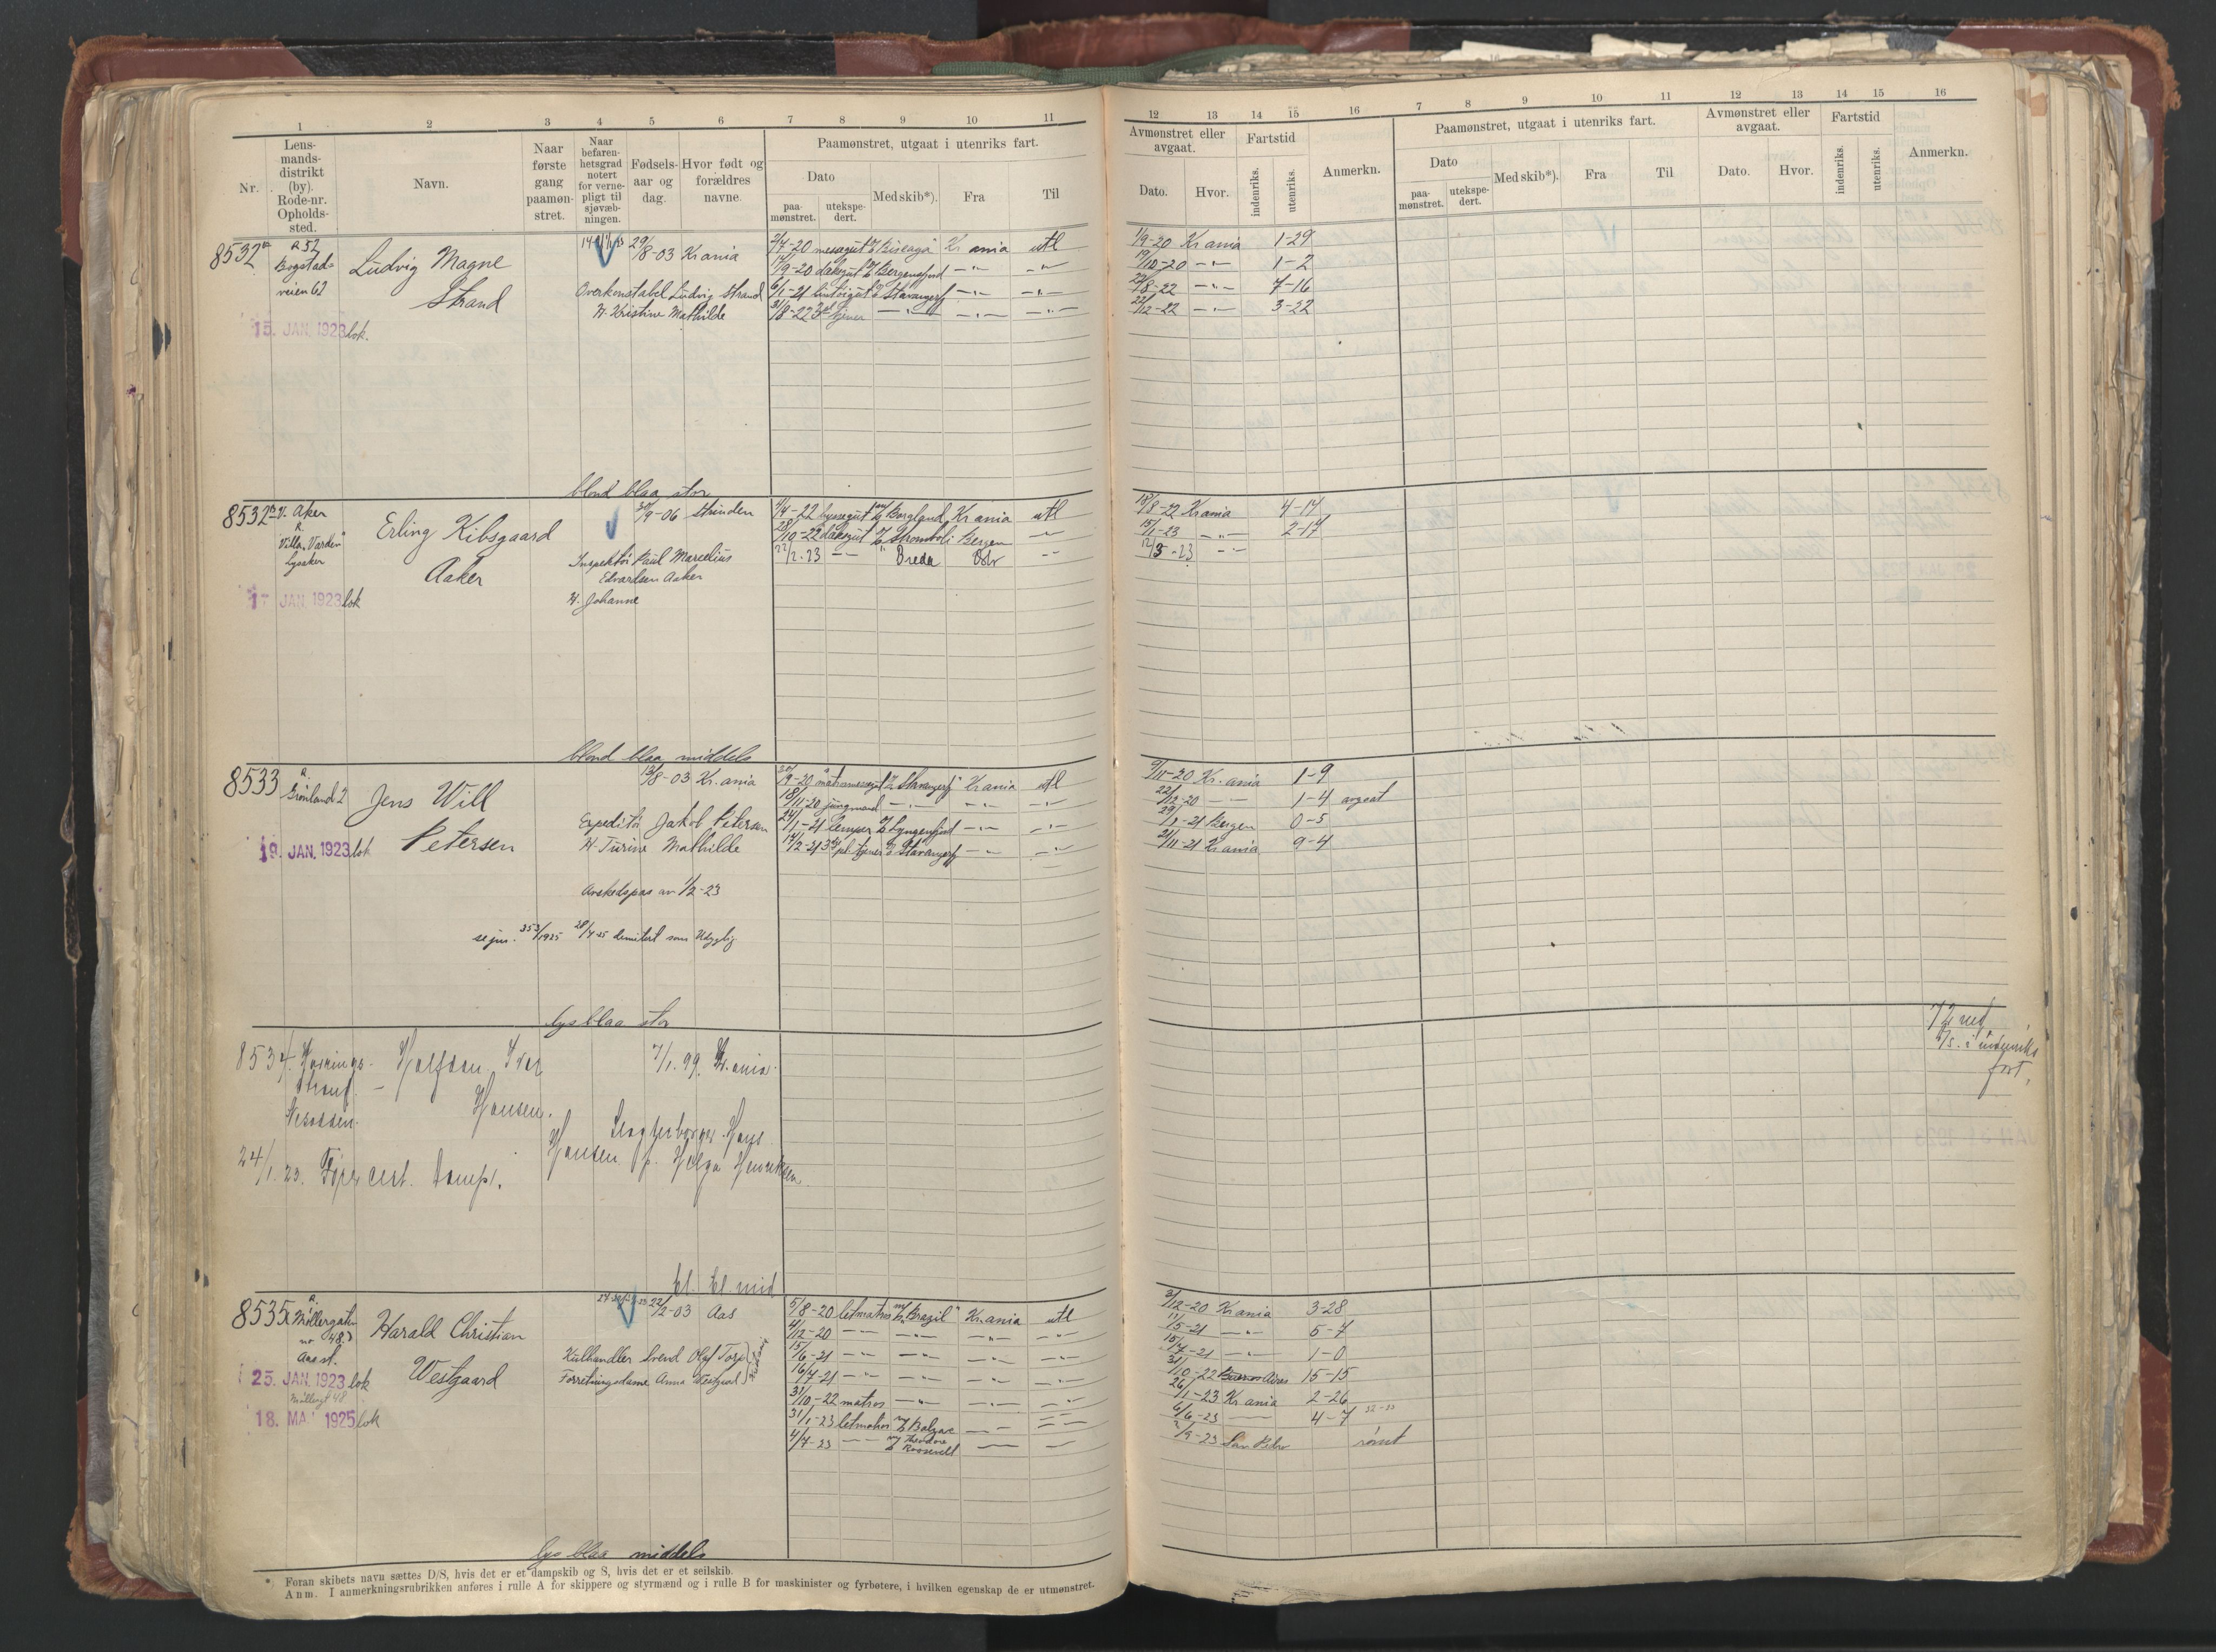 1 2 3 4 5 6 7 8 9 10 11
Nr.
Lens-
mands-
distrikt
(by).
Rode-nr.
Opholds-
sted.
Navn.
Naar
første
gang
paamøn-
stret.
Naar
befaren-
hetsgrad
notert
for verne-
pligt til
sjøvæb-
ningen.
Fødsels-
aar og
dag.
Hvor født og
forældres
navne.
Paamønstret, utgaat i utenriks fart.
Dato
paa-
mønstret.
utekspe-
dert.
Med skib*).
Fra
Til
12 13 14 15 16 7 8 9 10 11 12 13 14 15 16
Avmønstret eller
avgaat.
Dato.
Hvor.
Fartstid
indenriks.
utenriks.
Anmerkn.
Paamønstret, utgaat i utenriks fart.
Dato
paa-
mønstret.
utekspe-
dert.
Med skib*).
Fra
Til
Avmønstret eller
avgaat.
Dato.
Hvor.
Fartstid
indenriks.
utenriks.
Anmerkn.
8532a
R 52
Bogstad-
veien 62
15. JAN. 1923 lok.
Ludvig Magne
Strand
29/8-03 Kr ania
Overkonstabel Ludvig Strand
H. Kristine Mathilde
2/7-20 messegut Biscaya Kr ania utl
17/9-20 daksgut Bergensfjord -"- -"-
6/1-21 Stavangerfj -"- -"-
31/8-22 -"- -"- -"-
1/9-20 Kr ania 1-29
19/10-20 -"- 1-2
22/8-22 -"- 7-16
22/12-22 -"- 3-22
blond blaa stor
8532b
V. Aker
R.
Villa "Varden"
Lysaker
17 JAN 1923 lok
Erling Kibsgaard
Aaker
/9-06 Strinden
Inspektør Paul Marcelius
Edvardsen Aaker
H. Johanne
4/4-22 byssegut Borgland Kr ania utl
28/10-22 daksgut Stromboli Bergen -"-
22/2-23 -"- Breda Oslo -"-
18/8-22 Kr ania 4-14
15/1-23 -"- 2-17
12/3-23 -"-
blond blaa middels
8533
R.
Grønland 2
19. JAN. 1923 lok
Jens Will
Petersen
13/8-03 Kr. ania
Expeditør Jakob Petersen
H. Turine Mathilde
Avskedspas av 1/2-23
se jnr. 353/1925 28/4-25 dimitert som Udygtig
/9-20 Stavangerfj Kr ania utl
18/11-20 jungmand -"- -"- -"-
24/1-21 lemper Lyngenfjord -"- -"-
14/2-21 tjener Stavangerfj -"- -"-
9/11-20 Kr. ania 1-9
22/12-20 -"- 1-4 avgaat
29/1-21 Bergen 0-5
21/11-21 Kr ania 9-4
lys blaa stor
8534
Nesodden.
Halfdan Ivar
Hansen.
7/1. 99. Kr. ania.
Hans
Hansen Helga Henriksen
24/1. 23. cert. Damps.
fart.
bl. bl. mid
8535
R.
Møllergatn
no 48.
25. JAN 1923 lok
Møllergt 48
18. MAI 1925 lok
Harald Christian
Westgaard
22/2-03 Aas
Kulhandler Svend Olaf Torp
Forretningsdame Anna Westgaard
5/8-20 letmatros Brazil Kr. ania utl
4/12-20 -"- -"- -"- -"-
15/6-21 -"- -"- -"- -"-
16/7-21 -"- -"- -"- -"-
31/10-22 matros -"- -"- -"-
31/1-23 letmatros Balzac -"- -"-
4/7-23 -"- Theodore
Roosevelt -"- -"-
3/12-20 Kr ania 3-28
11/5-21 -"- 5-7
15/7-21 -"- 1-0
31/10-22 Buenos Aires 15-15
26/1-23 Kr ania 2-26
6/6-23 -"- 4-7
2/9-23 San Pedro rømt
lys blaa middels
*. Foran skibets navn sættes D/S, hvis det er et dampskib og S, hvis det er et seilskib.
Anm. I anmerkningsrubrikken anføres i rulle A for skippere og styrmænd og i rulle B for maskinister og fyrbøtere, i hvilken egenskap de er utmønstret.